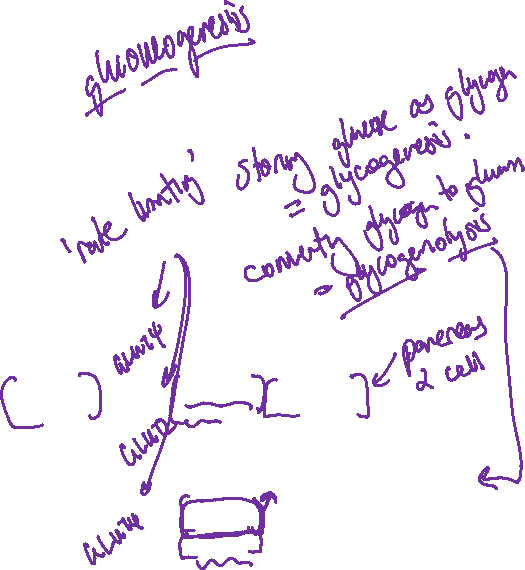 gluconeogenesis
'rate limiting'
storing glucose as glycogen
= glycogenesis.
converting glycogen to glucose
= glycogenolysis
GLUT4
pancreas
2 cell